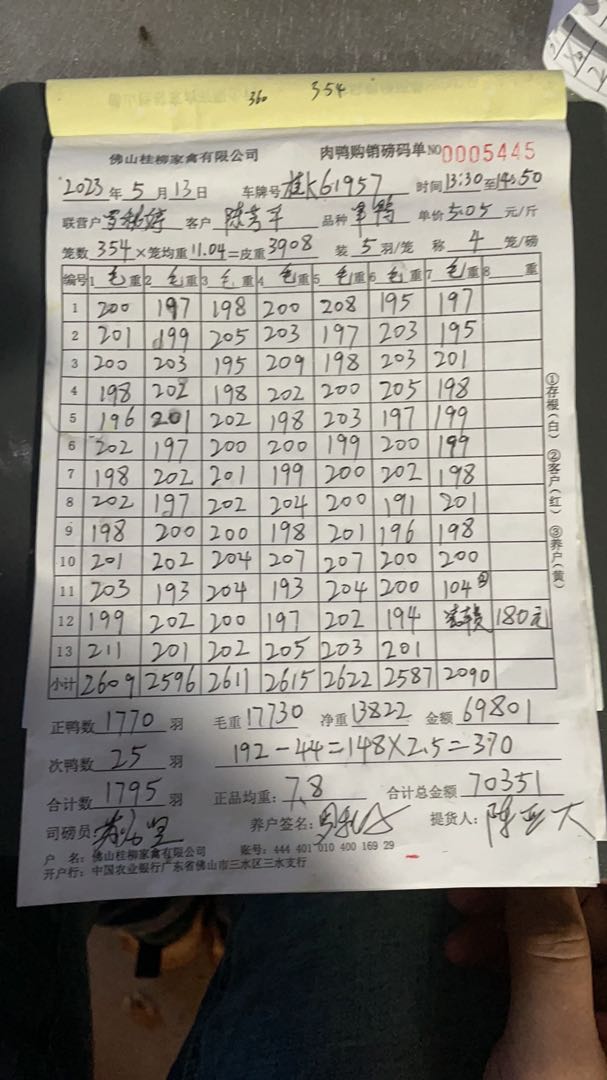 360 354
佛山桂柳家禽有限公司 肉鸭购销磅码单 NO 0005445
2023年5月13日 车牌号 桂K61957 时间 13:30至14:50
联营户 客户 品种 单价 5.05 元/斤
笼数 354 ×笼均重 11.04 =皮重 3908 装 5 羽/笼 称 4 笼/磅
编号 1 毛重 2 毛重 3 毛重 4 毛重 5 毛重 6 毛重 7 毛重 8 重
1 200 197 198 200 208 195 197
2 201 199 205 203 197 203 195
3 200 203 195 209 198 203 201
4 198 202 198 202 200 205 198
5 196 201 202 198 203 197 199
6 202 197 200 200 199 200 199
7 198 202 201 199 200 202 198
8 202 197 202 204 200 191 201
9 198 200 200 198 201 196 198
10 201 202 204 207 207 200 200
11 203 193 204 193 204 200 104
12 199 202 200 197 202 194 180元
13 211 201 202 205 203 201
小计 2609 2596 2611 2615 2622 2587 2090
正鸭数 1770 羽 毛重 17730 净重 13822 金额 69801
次鸭数 25 羽 192-44=148×2.5=370
合计数 1795 羽 正品均重: 7.8 合计总金额 70351
司磅员 养户签名: 提货人:
户 名: 佛山桂柳家禽有限公司 账号: 444 401 010 400 169 29
开户行: 中国农业银行广东省佛山市三水区三水支行
①存根(白) ②客户(红) ③养户(黄)